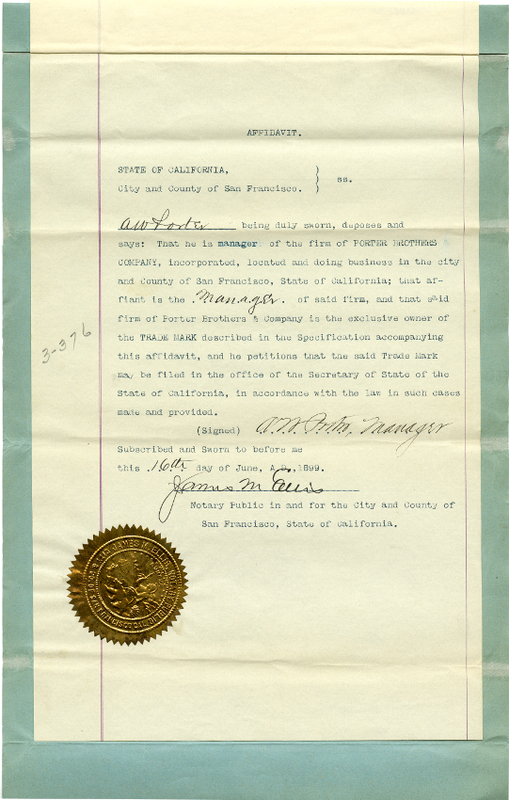 AFFIDAVIT.
STATE OF CALIFORNIA, )
) ss.
City and County of San Francisco. )
A W Porter being duly sworn, deposes and
says: That he is manager of the firm of PORTER BROTHERS
COMPANY, incorporated, located and doing business in the city
and County of San Francisco, State of California; that af-
fiant is the Manager. of said firm, and that said
firm of Porter Brothers & Company is the exclusive owner of
the TRADE MARK described in the Specification accompanying
this affidavit, and he petitions that the said Trade Mark
may be filed in the office of the Secretary of State of the
State of California, in accordance with the law in such cases
made and provided.
(Signed) A. W. Porter, Manager
Subscribed and Sworn to before me
this 16th day of June, A.D. 1899.
James M Ellis
Notary Public in and for the City and County of
San Francisco, State of California.
3-376
JAMES M. ELLIS NOTARY PUBLIC